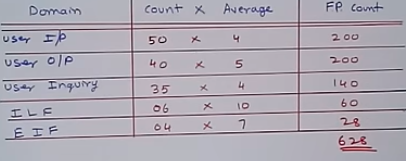 Domain Count × Average FP Count
User I/P 50 × 4 200
User O/P 40 × 5 200
User Inquiry 35 × 4 140
ILF 06 × 10 60
EIF 04 × 7 28
628